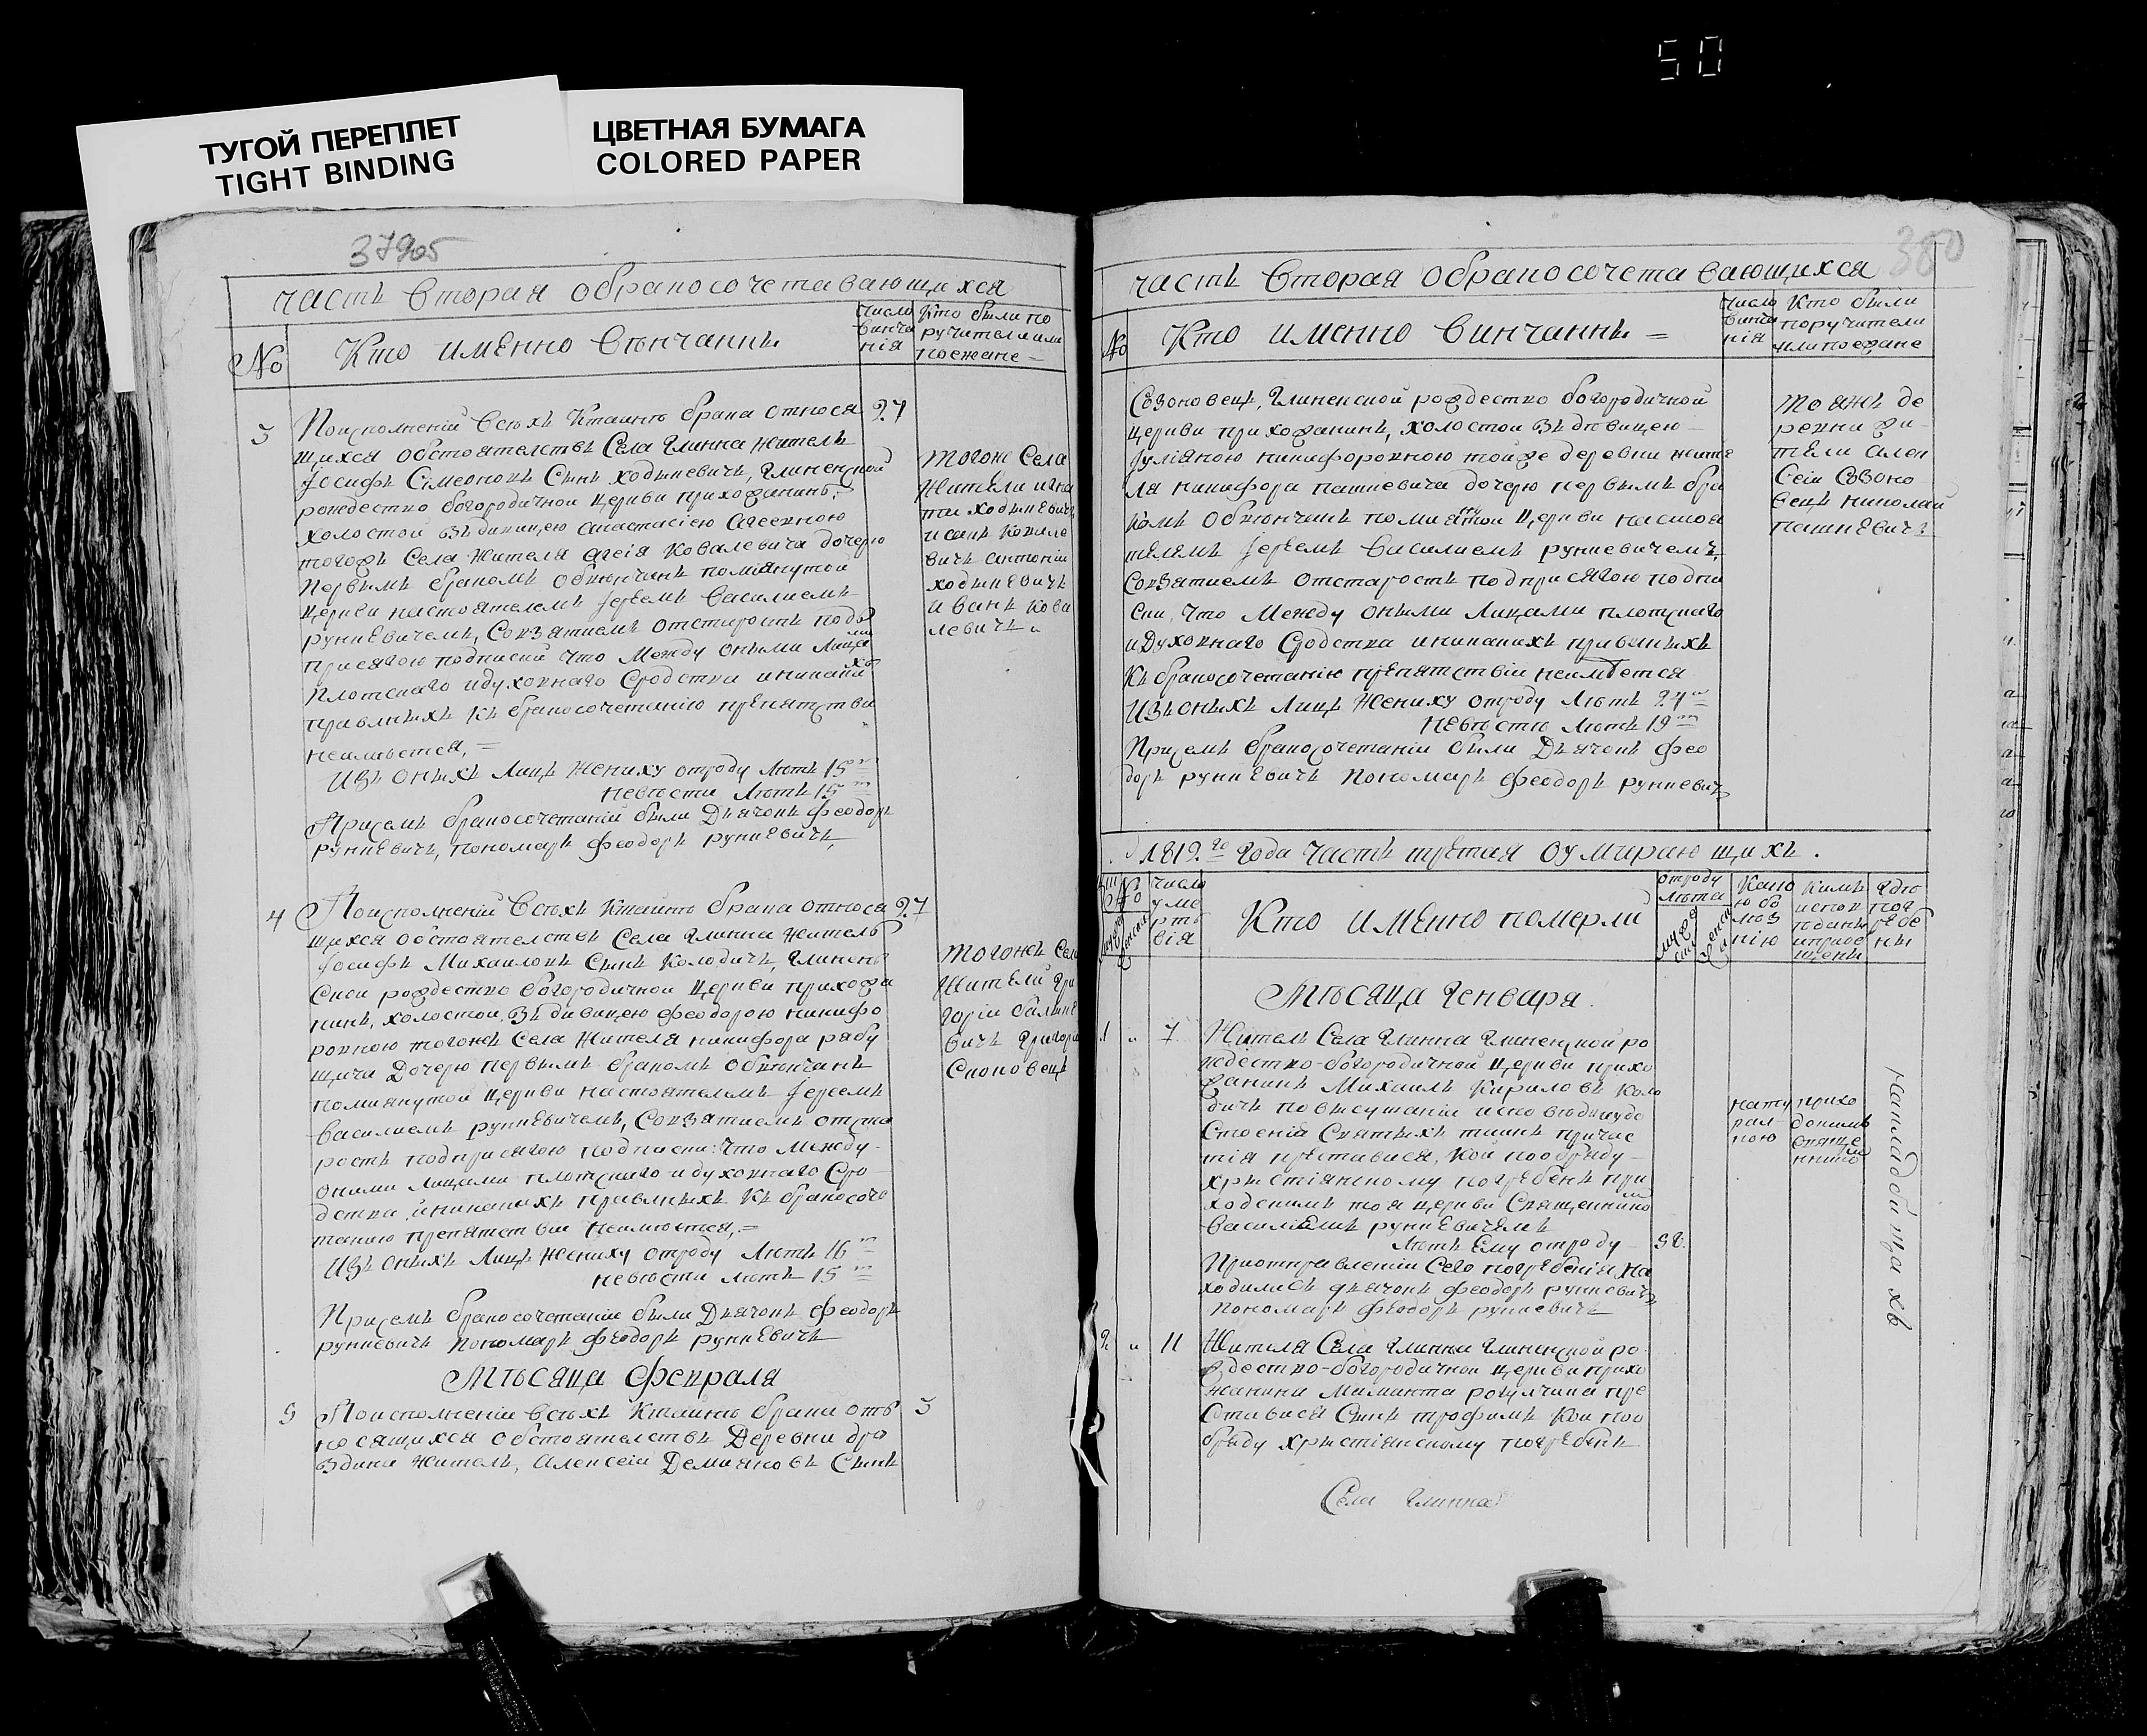 50
ТУГОЙ ПЕРЕПЛЕТ
TIGHT BINDING
ЦВЕТНАЯ БУМАГА
COLORED PAPER
часть Вторая обракосочетавающихся
№
Кто именно Венчанны
число винча нія
Кто были по ручители или поезжане
3
Поисполненій Всехъ Ктаинъ брака относя
27
щихся обстоятелствъ Села Глинна жителъ
Іосифъ Симеоновъ Синъ Ходыневичъ, Глиненской
рождество богородичной Церкви прихожанинъ,
холостой зъ дивицею Анастасіею Агеевною
тогожъ Села жителя Агеія Ковалевича дочерю
Первымъ бракомъ обвенчанъ помянутой
Церкви настоятелемъ Іереемъ Василиемъ
рункевичемъ, Совзятиемъ отстаростъ подъ
присягою подписки что Между оными Лица
ми
Плотскаго идуховнаго Сродства иникаки
хъ
правлныхъ къ бракосочетанію препятстви
неимѣется, =
Изъ онихъ Лицъ жениху отроду летъ 15
невести летъ 15
Присемъ бракосочетаній были Дьячокъ Феодоръ
рункевичъ, пономаръ Феодоръ рункевичъ,
тогоже Села
Жители игна
тій ходыневичъ
исакъ Ковале
вичъ антоній
ходыневичъ
иванъ Кова
левичъ
4
Поисполненій Всехъ Ктаинъ брака относя
27
щихся обстоятелствъ Села Глинна житель
Іосифъ Михаиловъ Синъ Колодичъ, Глинен
Ской рождество богородичной Церкви прихожа
нинъ, холостой, зъ дивицею феодорою никифо
ровною тогожъ Села Жителя никифора рабу
щича Дочерю первымъ бракомъ обвенчанъ
помянутой Церкви настоятелемъ Іереемъ
Василиемъ рункевичемъ, Совзятиемъ отста
ростъ подприсягою подписки: что Между
оными лицами плотскаго идуховнаго Сро
дства, иникакихъ правлныхъ къ бракосоче
танию препятствій неимеется, =
Изъ онихъ Лицъ жениху отроду Летъ 16
невести летъ 15
Присемъ бракосочетаніи были Дьячокъ Феодоръ
рункевичъ Пономаръ Феодоръ рункевичъ
тогожъ Села
Жители Гри
горій
вичъ Григори
Споновецъ
Мѣсяца Февраля
5
Поисполненіи всехъ Ктаинъ брака отъ
3
носящихся обстоятелствъ Деревни дро
здина житель, Алексей Демияновъ Синъ
380
часть Вторая обракосочетавающихся
№
Кто именно Винчанны =
число винча нія
Кто были поручители или поезжане
Созоновецъ, Глиненской рождество богородичной
Церкви прихожанинъ, холостой зъ дивицею
Іуліяною никифоровною тойже деревни жите
ля никифора пашкевича дочерю первымъ бра
комъ обвенчанъ помянутой Церкви настоя
телемъ Іереемъ Василиемъ рункевичемъ,
Совзятиемъ отстаростъ подприсягою подпи
ски, что Между оными Лицами плотскаго
идуховнаго Сродства иникакихъ правлныхъ
къ бракосочетанію препятствій неимеется
Изъ онихъ Лицъ жениху отроду летъ 24
невестѣ летъ 19
Присемъ бракосочетаніи были Дьячокъ Фео
доръ рункевичъ Пономаръ Феодоръ рункевичъ
тояжъ де
ревни жи
тели алек
Сей Созоно
вецъ николай
пашкевичъ
1819го года часть третая оумирающихъ.
№
число уме ртв ія
Кто именно померли
отроду лета
Какою бо лѣз нію
Кимъ испов иприоб щенъ
Где погребе ны
Мѣсяца Генваря.
1
7
Жителъ Села Глинна Глиненской ро
ждество-богородичной Церкви прихо
жанинъ Михаилъ Кириловъ Коло
дичъ
Святыхъ таинъ причас
тія преставися, Кой пообряду
христіянскому погребенъ при
ходскимъ тоя церкви Священнико
мъ
Василіемъ рункевичемъ
летъ Ему отроду
Приотправленіи Сего погребенія На
ходились дьячокъ Феодоръ рункевичъ
пономаръ Феодоръ рункевичъ
нату рал ною
прихо дскимъ Священнико мъ
накладбищахъ
2
11
Жителя Села Глинна Глиненской ро
ждество-богородичной Церкви прихо
жанина Маманта рогулчика пре
Ставися Синъ трофимъ Кой поо
бряду христіянскому погребенъ
Села Глинна